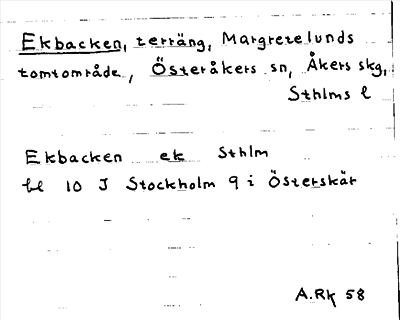 Ekbacken, terräng, Margretelunds
tomtområde, Österåkers sn, Åkers skg,
Sthlms l
Ekbacken ek Sthlm
bl 10 J Stockholm 9 i Österskär
A.Rk 58